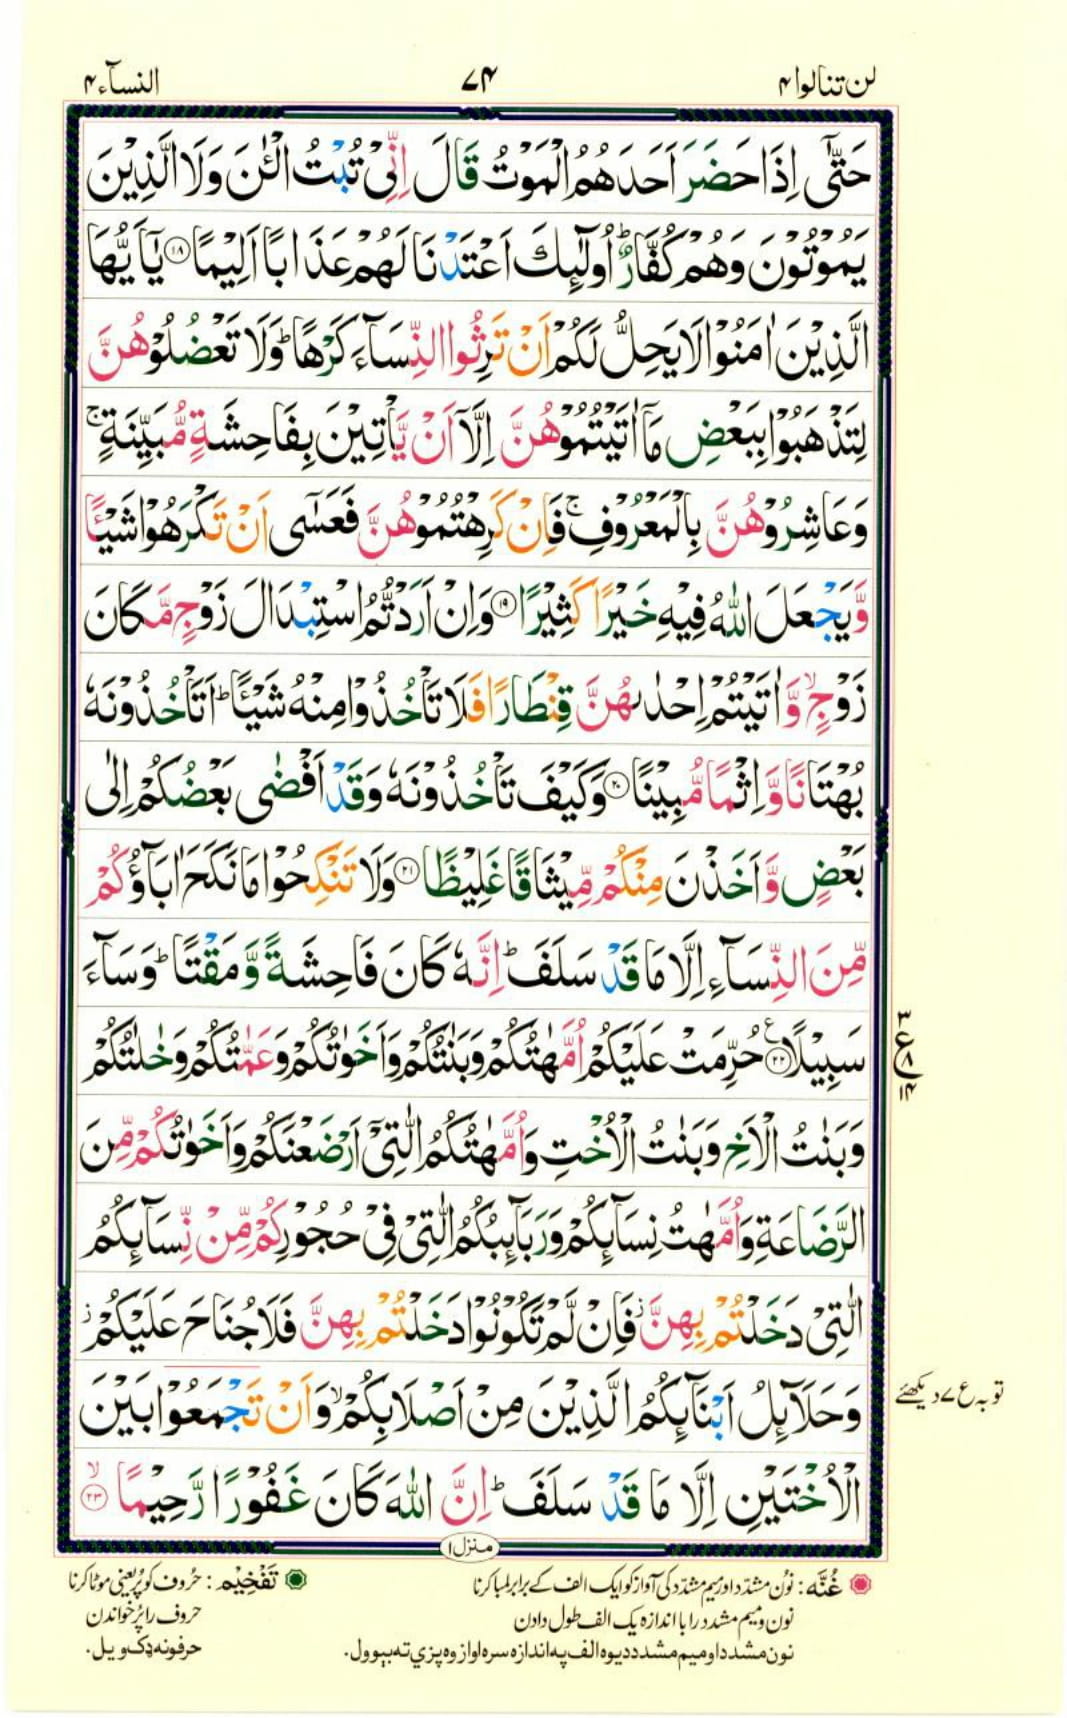 لن تنالوا ۴
۷۴
النسآء ۴
حَتّٰۤی اِذَا حَضَرَ اَحَدَهُمُ الْمَوْتُ قَالَ اِنِّیْ تُبْتُ الْـٰٔنَ وَلَا الَّذِیْنَ
یَمُوْتُوْنَ وَهُمْ كُفَّارٌ ؕ اُولٰٓىِٕكَ اَعْتَدْنَا لَهُمْ عَذَابًا اَلِیْمًا ۱۸ یٰۤاَیُّهَا
الَّذِیْنَ اٰمَنُوْا لَا یَحِلُّ لَكُمْ اَنْ تَرِثُوا النِّسَآءَ كَرْهًا ؕ وَلَا تَعْضُلُوْهُنَّ
لِتَذْهَبُوْا بِبَعْضِ مَاۤ اٰتَیْتُمُوْهُنَّ اِلَّاۤ اَنْ یَّاْتِیْنَ بِفَاحِشَةٍ مُّبَیِّنَةٍ ۚ
وَعَاشِرُوْهُنَّ بِالْمَعْرُوْفِ ۚ فَاِنْ كَرِهْتُمُوْهُنَّ فَعَسٰۤی اَنْ تَكْرَهُوْا شَیْـًٔا
وَّیَجْعَلَ اللّٰهُ فِیْهِ خَیْرًا كَثِیْرًا ۱۹ وَاِنْ اَرَدْتُّمُ اسْتِبْدَالَ زَوْجٍ مَّكَانَ
زَوْجٍ ۙ وَّاٰتَیْتُمْ اِحْدٰىهُنَّ قِنْطَارًا فَلَا تَاْخُذُوْا مِنْهُ شَیْـًٔا ؕ اَتَاْخُذُوْنَهٗ
بُهْتَانًا وَّاِثْمًا مُّبِیْنًا ۲۰ وَكَیْفَ تَاْخُذُوْنَهٗ وَقَدْ اَفْضٰی بَعْضُكُمْ اِلٰی
بَعْضٍ وَّاَخَذْنَ مِنْكُمْ مِّیْثَاقًا غَلِیْظًا ۲۱ وَلَا تَنْكِحُوْا مَا نَكَحَ اٰبَآؤُكُمْ
مِّنَ النِّسَآءِ اِلَّا مَا قَدْ سَلَفَ ؕ اِنَّهٗ كَانَ فَاحِشَةً وَّمَقْتًا ؕ وَسَآءَ
سَبِیْلًا ۲۲ حُرِّمَتْ عَلَیْكُمْ اُمَّهٰتُكُمْ وَبَنٰتُكُمْ وَاَخَوٰتُكُمْ وَعَمّٰتُكُمْ وَخٰلٰتُكُمْ
۳
ع
۸
۱۴
وَبَنٰتُ الْاَخِ وَبَنٰتُ الْاُخْتِ وَاُمَّهٰتُكُمُ الّٰتِیْۤ اَرْضَعْنَكُمْ وَاَخَوٰتُكُمْ مِّنَ
الرَّضَاعَةِ وَاُمَّهٰتُ نِسَآىِٕكُمْ وَرَبَآىِٕبُكُمُ الّٰتِیْ فِیْ حُجُوْرِكُمْ مِّنْ نِّسَآىِٕكُمُ
الّٰتِیْ دَخَلْتُمْ بِهِنَّ ؗ فَاِنْ لَّمْ تَكُوْنُوْا دَخَلْتُمْ بِهِنَّ فَلَا جُنَاحَ عَلَیْكُمْ ؗ
وَحَلَآىِٕلُ اَبْنَآىِٕكُمُ الَّذِیْنَ مِنْ اَصْلَابِكُمْ ۙ وَاَنْ تَجْمَعُوْا بَیْنَ
توبہ ع ۷ دیکھئے
الْاُخْتَیْنِ اِلَّا مَا قَدْ سَلَفَ ؕ اِنَّ اللّٰهَ كَانَ غَفُوْرًا رَّحِیْمًا ۙ ۲۳
منزل ۱
غُنَّه : نون مشدّد اور میم مشدّد کی آواز کو ایک الف کے برابر لمبا کرنا
نون و میم مشدد را با اندازه یک الف طول دادن
نون مشدد او میم مشدد دیوه الف په اندازه سره اواز وه پزي ته بېوول.
تَفْخِیْم : حُروف کو پُر یعنی موٹا کرنا
حروف را پُر خواندن
حرفونه ډک ویل.